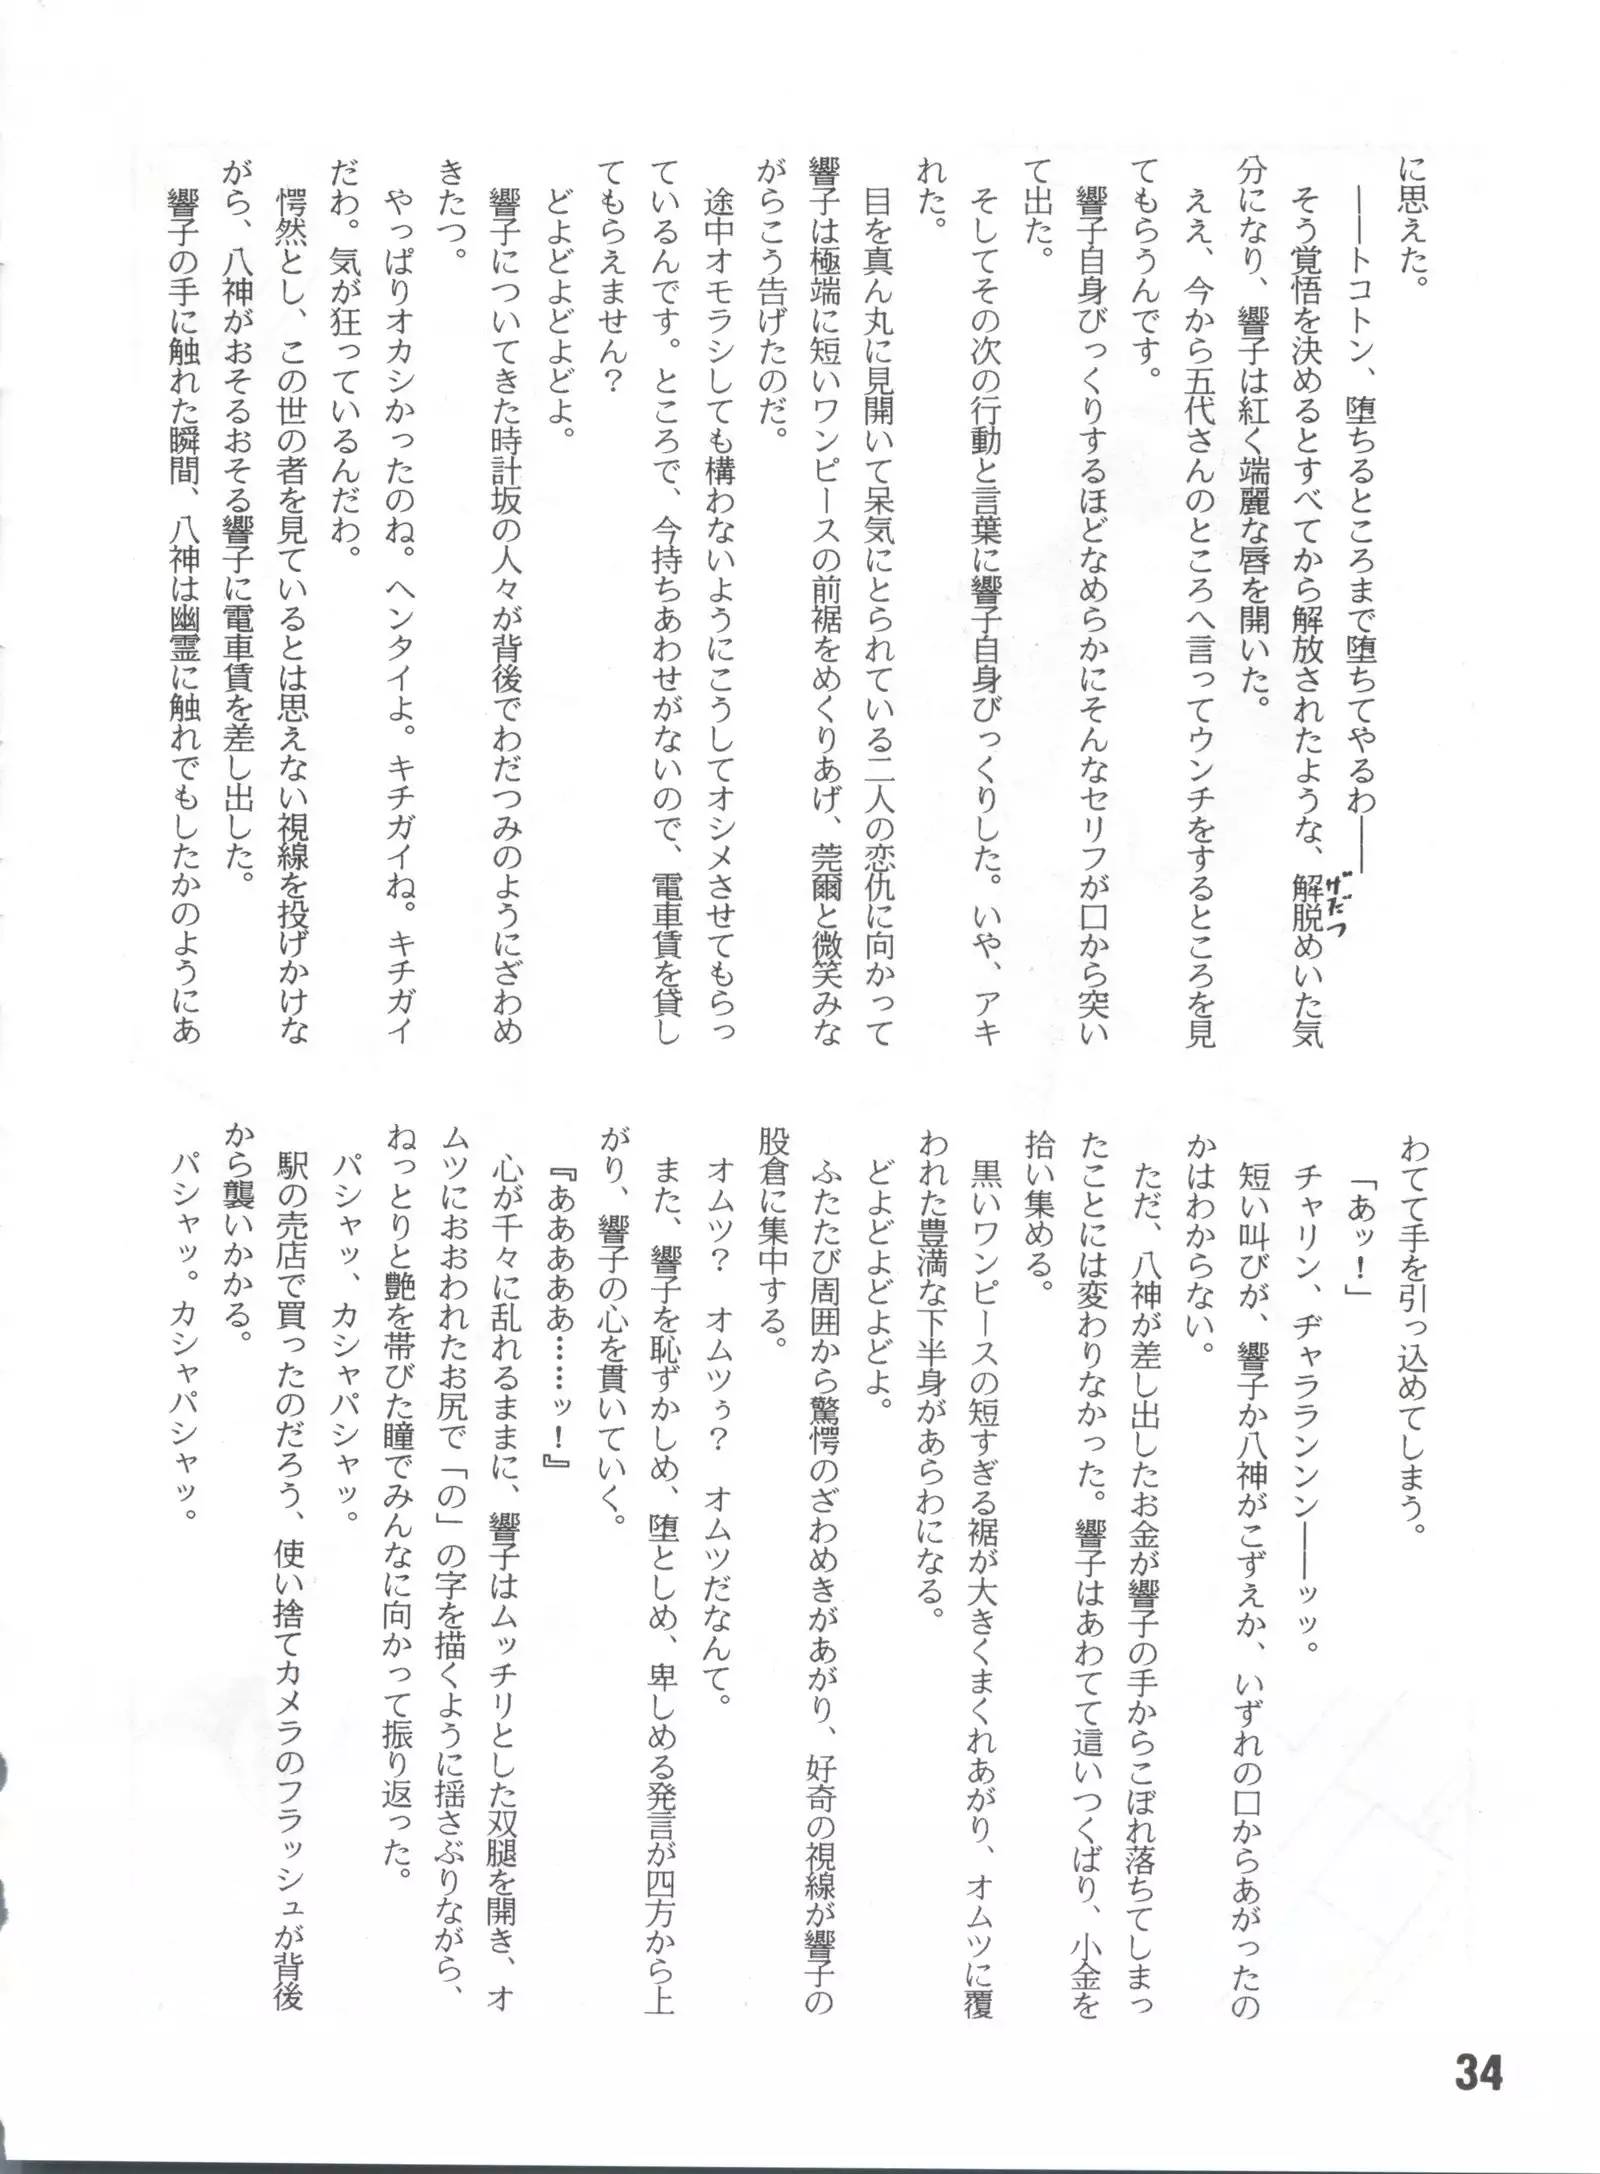 に思えた。
――トコトン、堕ちるところまで堕ちてやるわ――
そう覚悟を決めるとすべてから解放されたような、解脱めいた気
げだつ
分になり、響子は紅く端麗な唇を開いた。
ええ、今から五代さんのところへ言ってウンチをするところを見
てもらうんです。
響子自身びっくりするほどなめらかにそんなセリフが口から突い
て出た。
そしてその次の行動と言葉に響子自身びっくりした。いや、アキ
れた。
目を真ん丸に見開いて呆気にとられている二人の恋仇に向かって
響子は極端に短いワンピースの前裾をめくりあげ、莞爾と微笑みな
がらこう告げたのだ。
途中オモラシしても構わないようにこうしてオシメさせてもらっ
ているんです。ところで、今持ちあわせがないので、電車賃を貸し
てもらえません？
どよどよどよどよ。
響子についてきた時計坂の人々が背後でわだつみのようにざわめ
きたつ。
やっぱりオカシかったのね。ヘンタイよ。キチガイね。キチガイ
だわ。気が狂っているんだわ。
愕然とし、この世の者を見ているとは思えない視線を投げかけな
がら、八神がおそるおそる響子に電車賃を差し出した。
響子の手に触れた瞬間、八神は幽霊に触れでもしたかのようにあ
わてて手を引っ込めてしまう。
「あッ！」
チャリン、ヂャラランンン――ッッ。
短い叫びが、響子か八神がこずえか、いずれの口からあがったの
かはわからない。
ただ、八神が差し出したお金が響子の手からこぼれ落ちてしまっ
たことには変わりなかった。響子はあわてて這いつくばり、小金を
拾い集める。
黒いワンピースの短すぎる裾が大きくまくれあがり、オムツに覆
われた豊満な下半身があらわになる。
どよどよどよどよ。
ふたたび周囲から驚愕のざわめきがあがり、好奇の視線が響子の
股倉に集中する。
オムツ？　オムツぅ？　オムツだなんて。
また、響子を恥ずかしめ、堕としめ、卑しめる発言が四方から上
がり、響子の心を貫いていく。
『あああああ……ッ！』
心が千々に乱れるままに、響子はムッチリとした双腿を開き、オ
ムツにおおわれたお尻で「の」の字を描くように揺さぶりながら、
ねっとりと艶を帯びた瞳でみんなに向かって振り返った。
パシャッ、カシャパシャッ。
駅の売店で買ったのだろう、使い捨てカメラのフラッシュが背後
から襲いかかる。
パシャッ。カシャパシャッ。
34